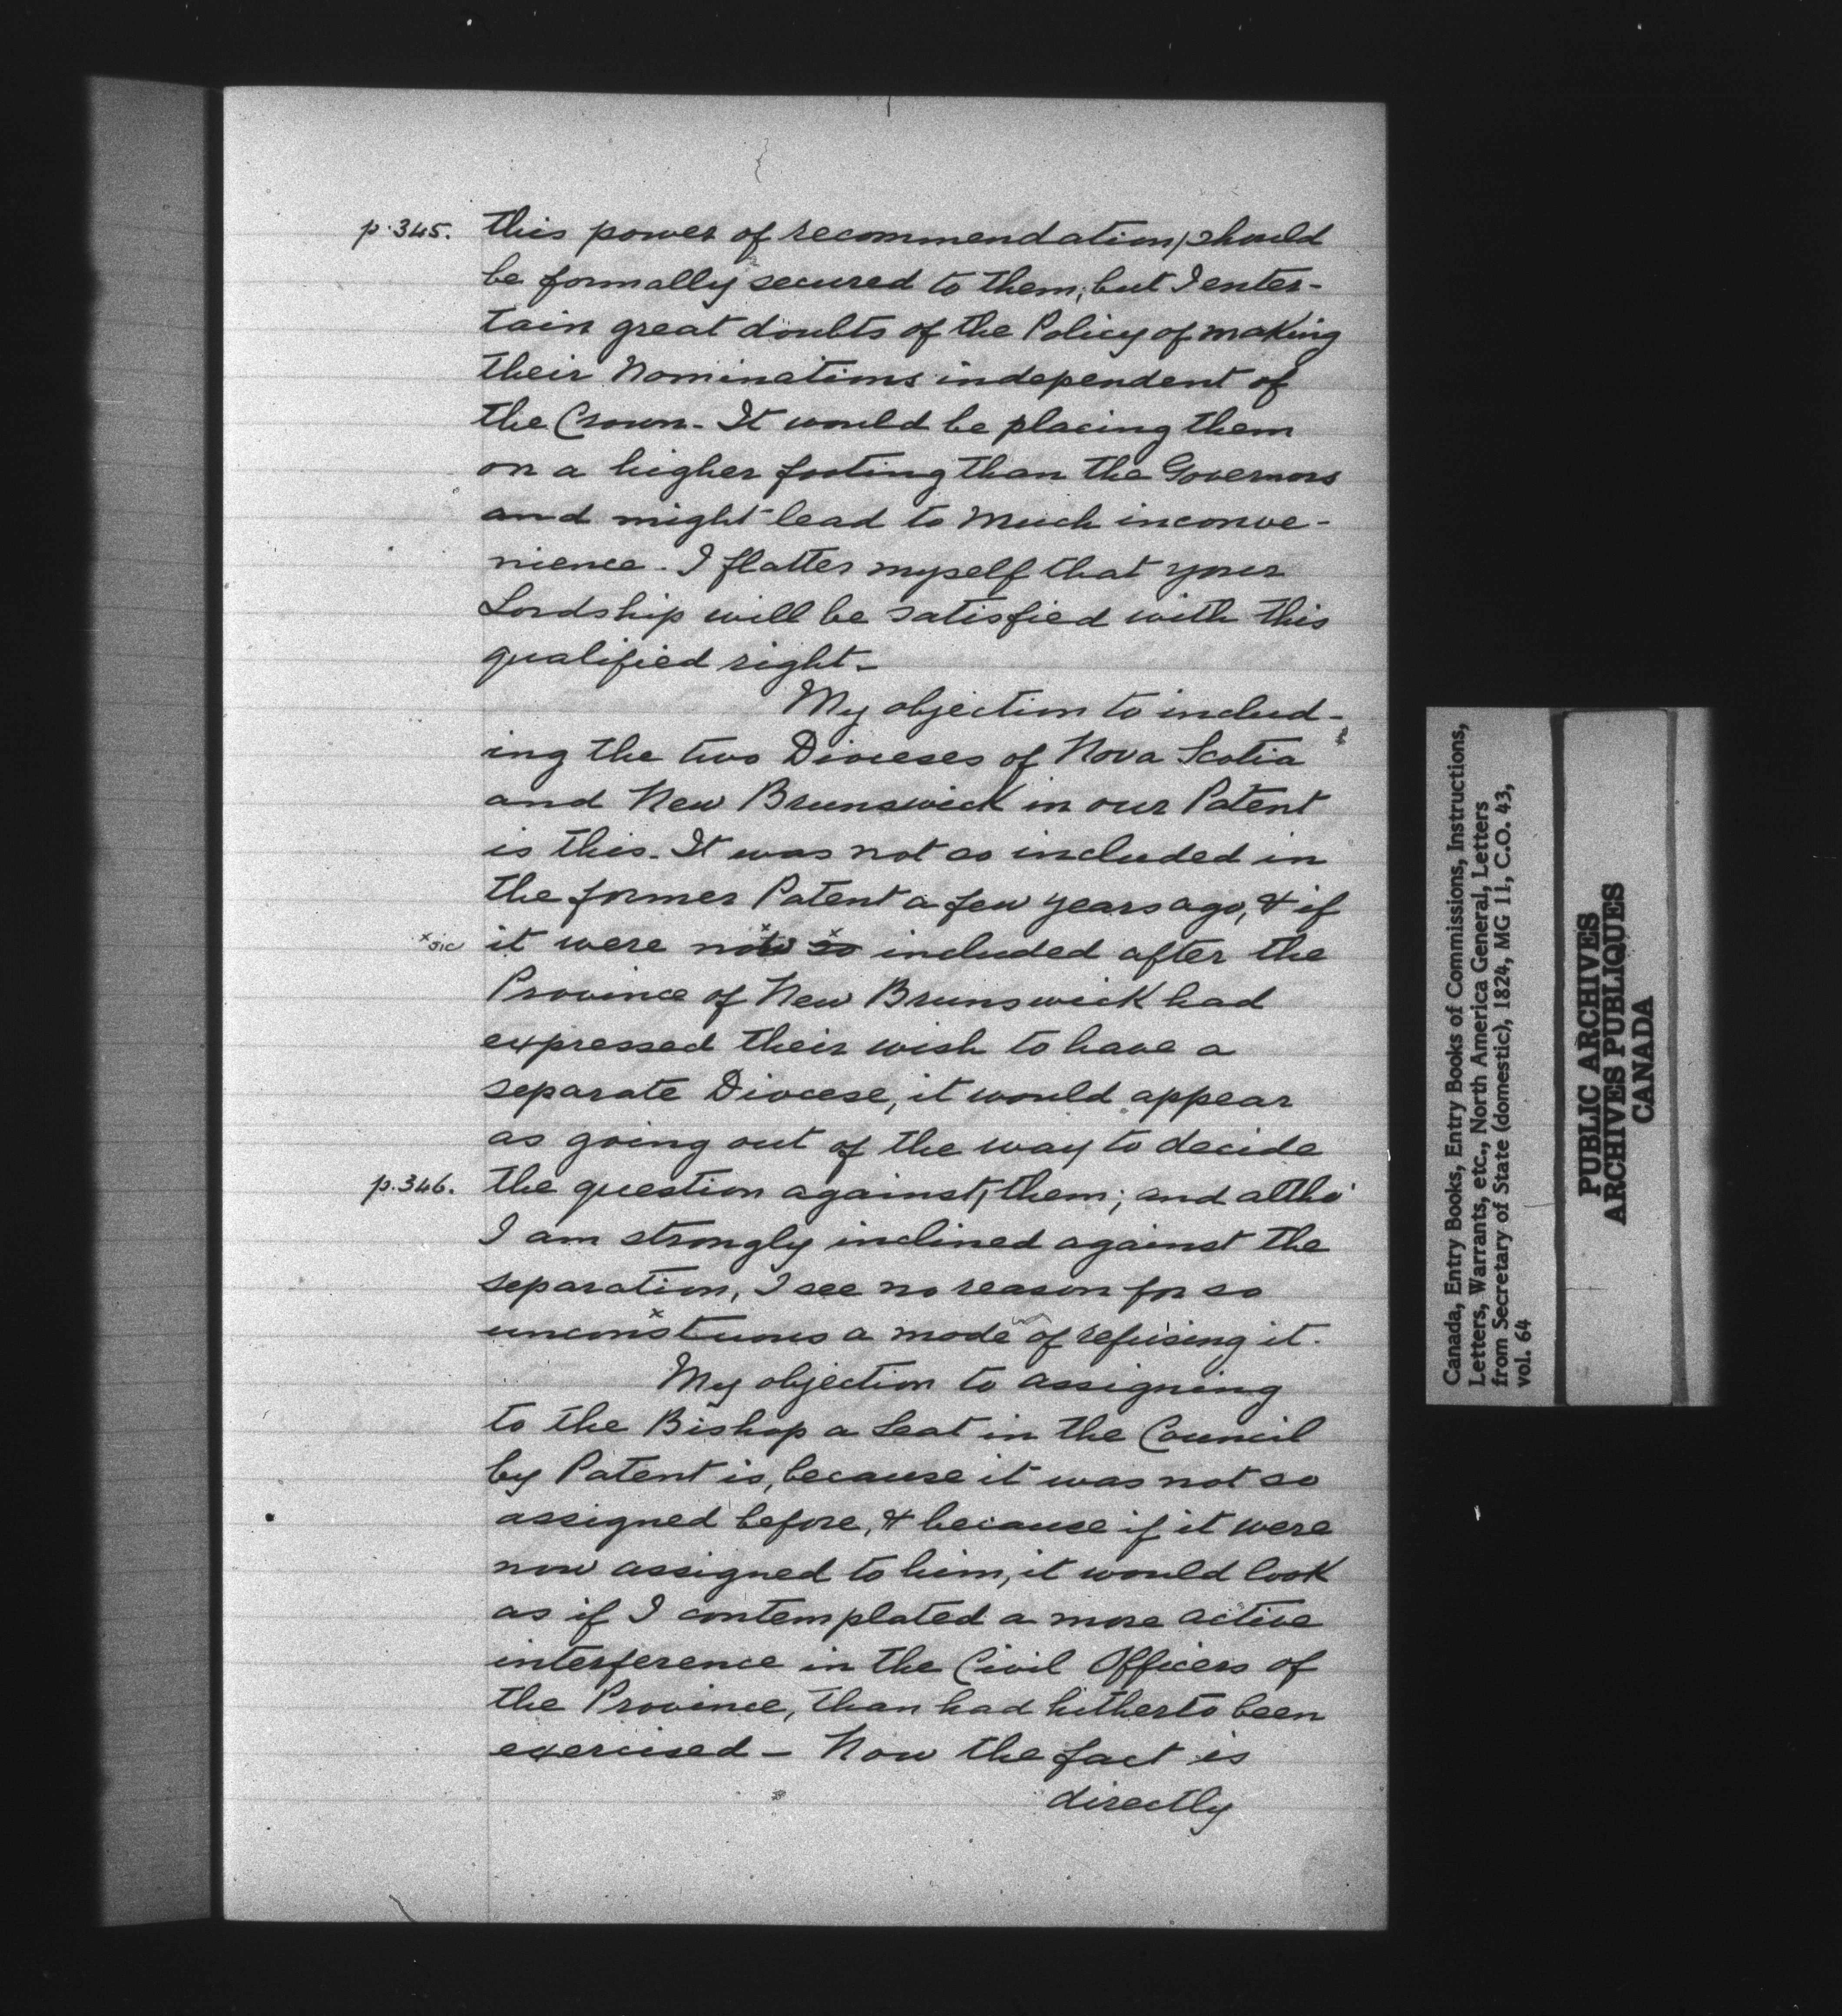 p. 345. this power of recommendation/should
be formally secured to them; but I enter-
tain great doubts of the Policy of making
their Nominations independent of
the Crown - It would be placing them
on a higher footing than the Governors
and might lead to much inconve-
nience - I flatter myself that your
Lordship will be satisfied with this
qualified right -
My objection to includ-
ing the two Dioceses of Nova Scotia
and New Brunswick in our Patent
is this - It was not so included in
the former Patent a few years ago, & if
x sic it were now so included after the
Province of New Brunswick had
expressed their wish to have a
separate Diocese, it would appear
as going out of the way to decide
p. 346. the question against/them; and altho'
I am strongly inclined against the
separation, I see no reason for so
unconstuous a mode of refusing it.
My objection to assigning
to the Bishop a Seat in the Council
by Patent is, because it was not so
assigned before, & because if it were
now assigned to him, it would look
as if I contemplated a more active
interference in the Civil Officers of
the Province, than had hitherto been
exercised - Now the fact is
directly
Canada, Entry Books, Entry Books of Commissions, Instructions,
Letters, Warrants, etc., North America General, Letters
from Secretary of State (domestic), 1824, MG 11, C.O. 43,
vol. 64
PUBLIC ARCHIVES
ARCHIVES PUBLIQUES
CANADA